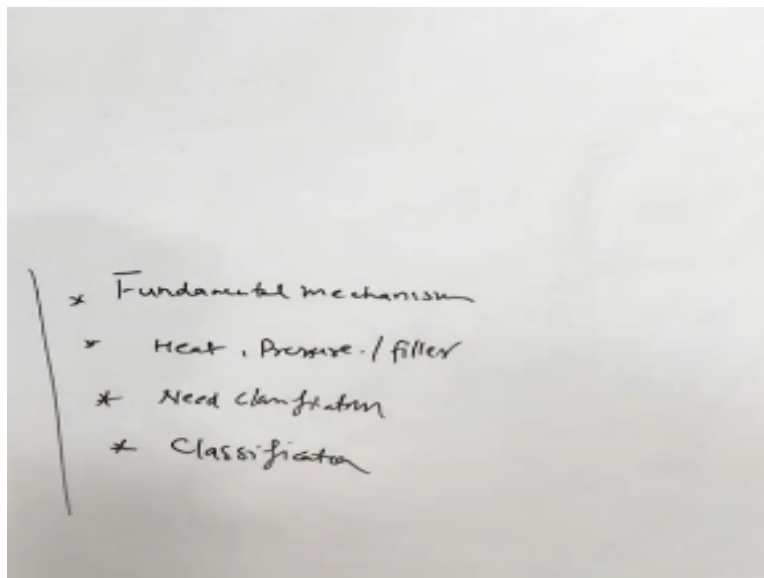 * Fundamental mechanism
* Heat, Pressure / filler
* Need Classification
* Classification